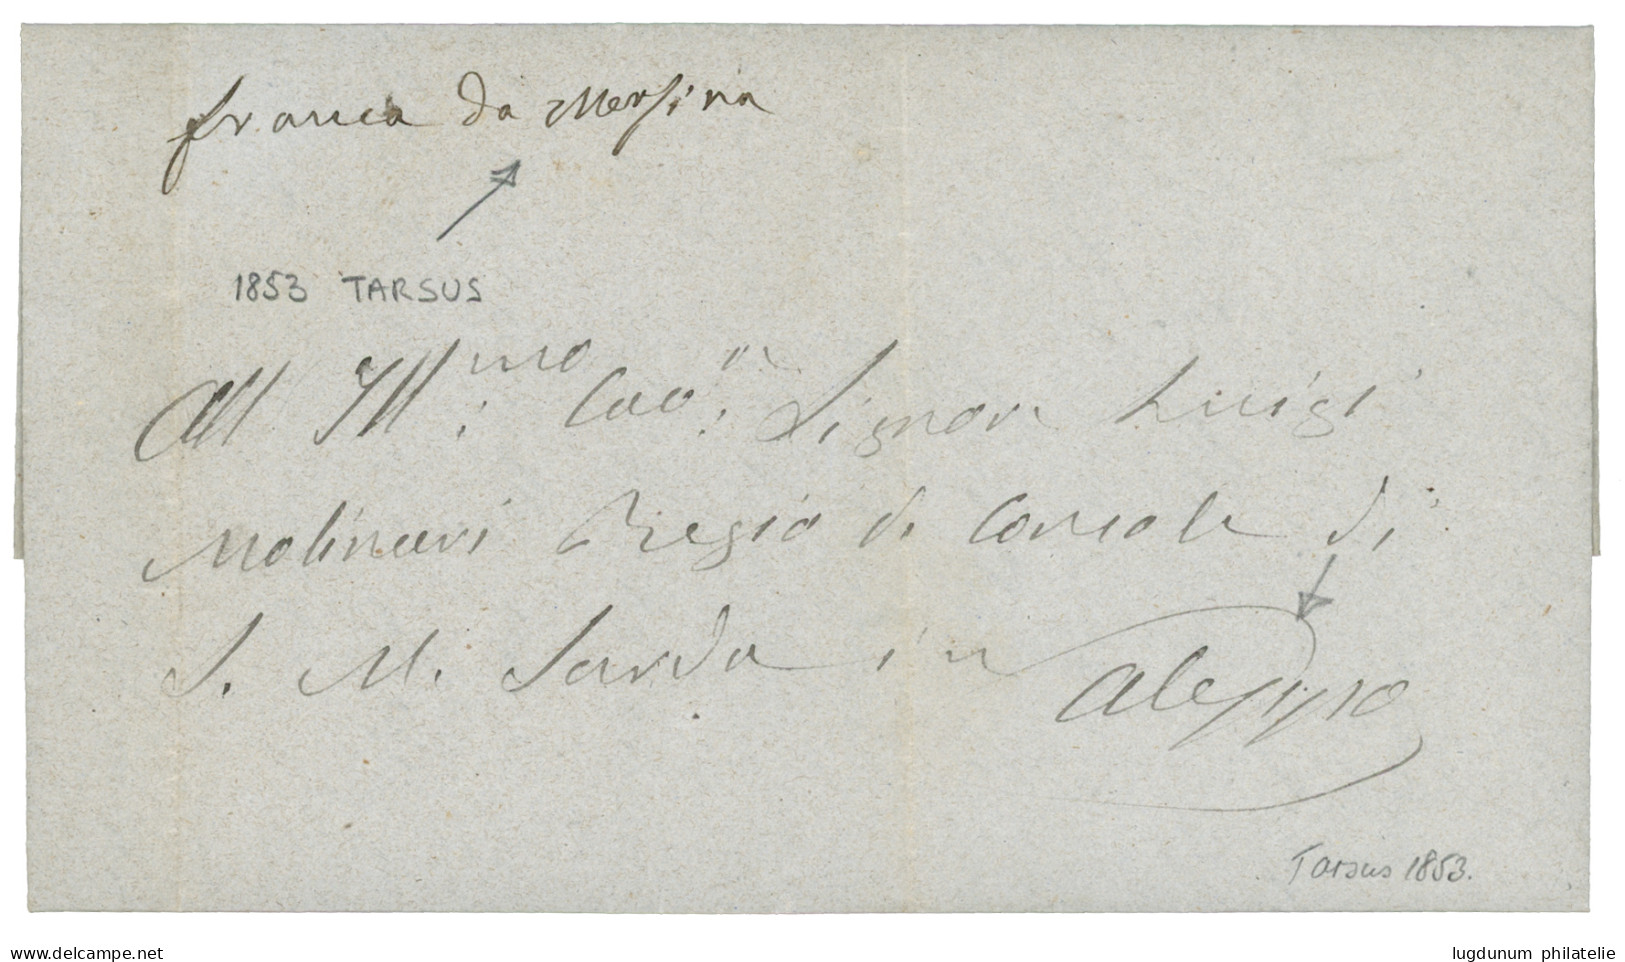 franca da Mersina
1853 TARSUS
All Ill.mo Cav.r Signor Luigi
Molinari Regio di Console di
S. M. Sarda in
Aleppo
Tarsus 1853.
www.delcampe.net
lugdunum philatelie